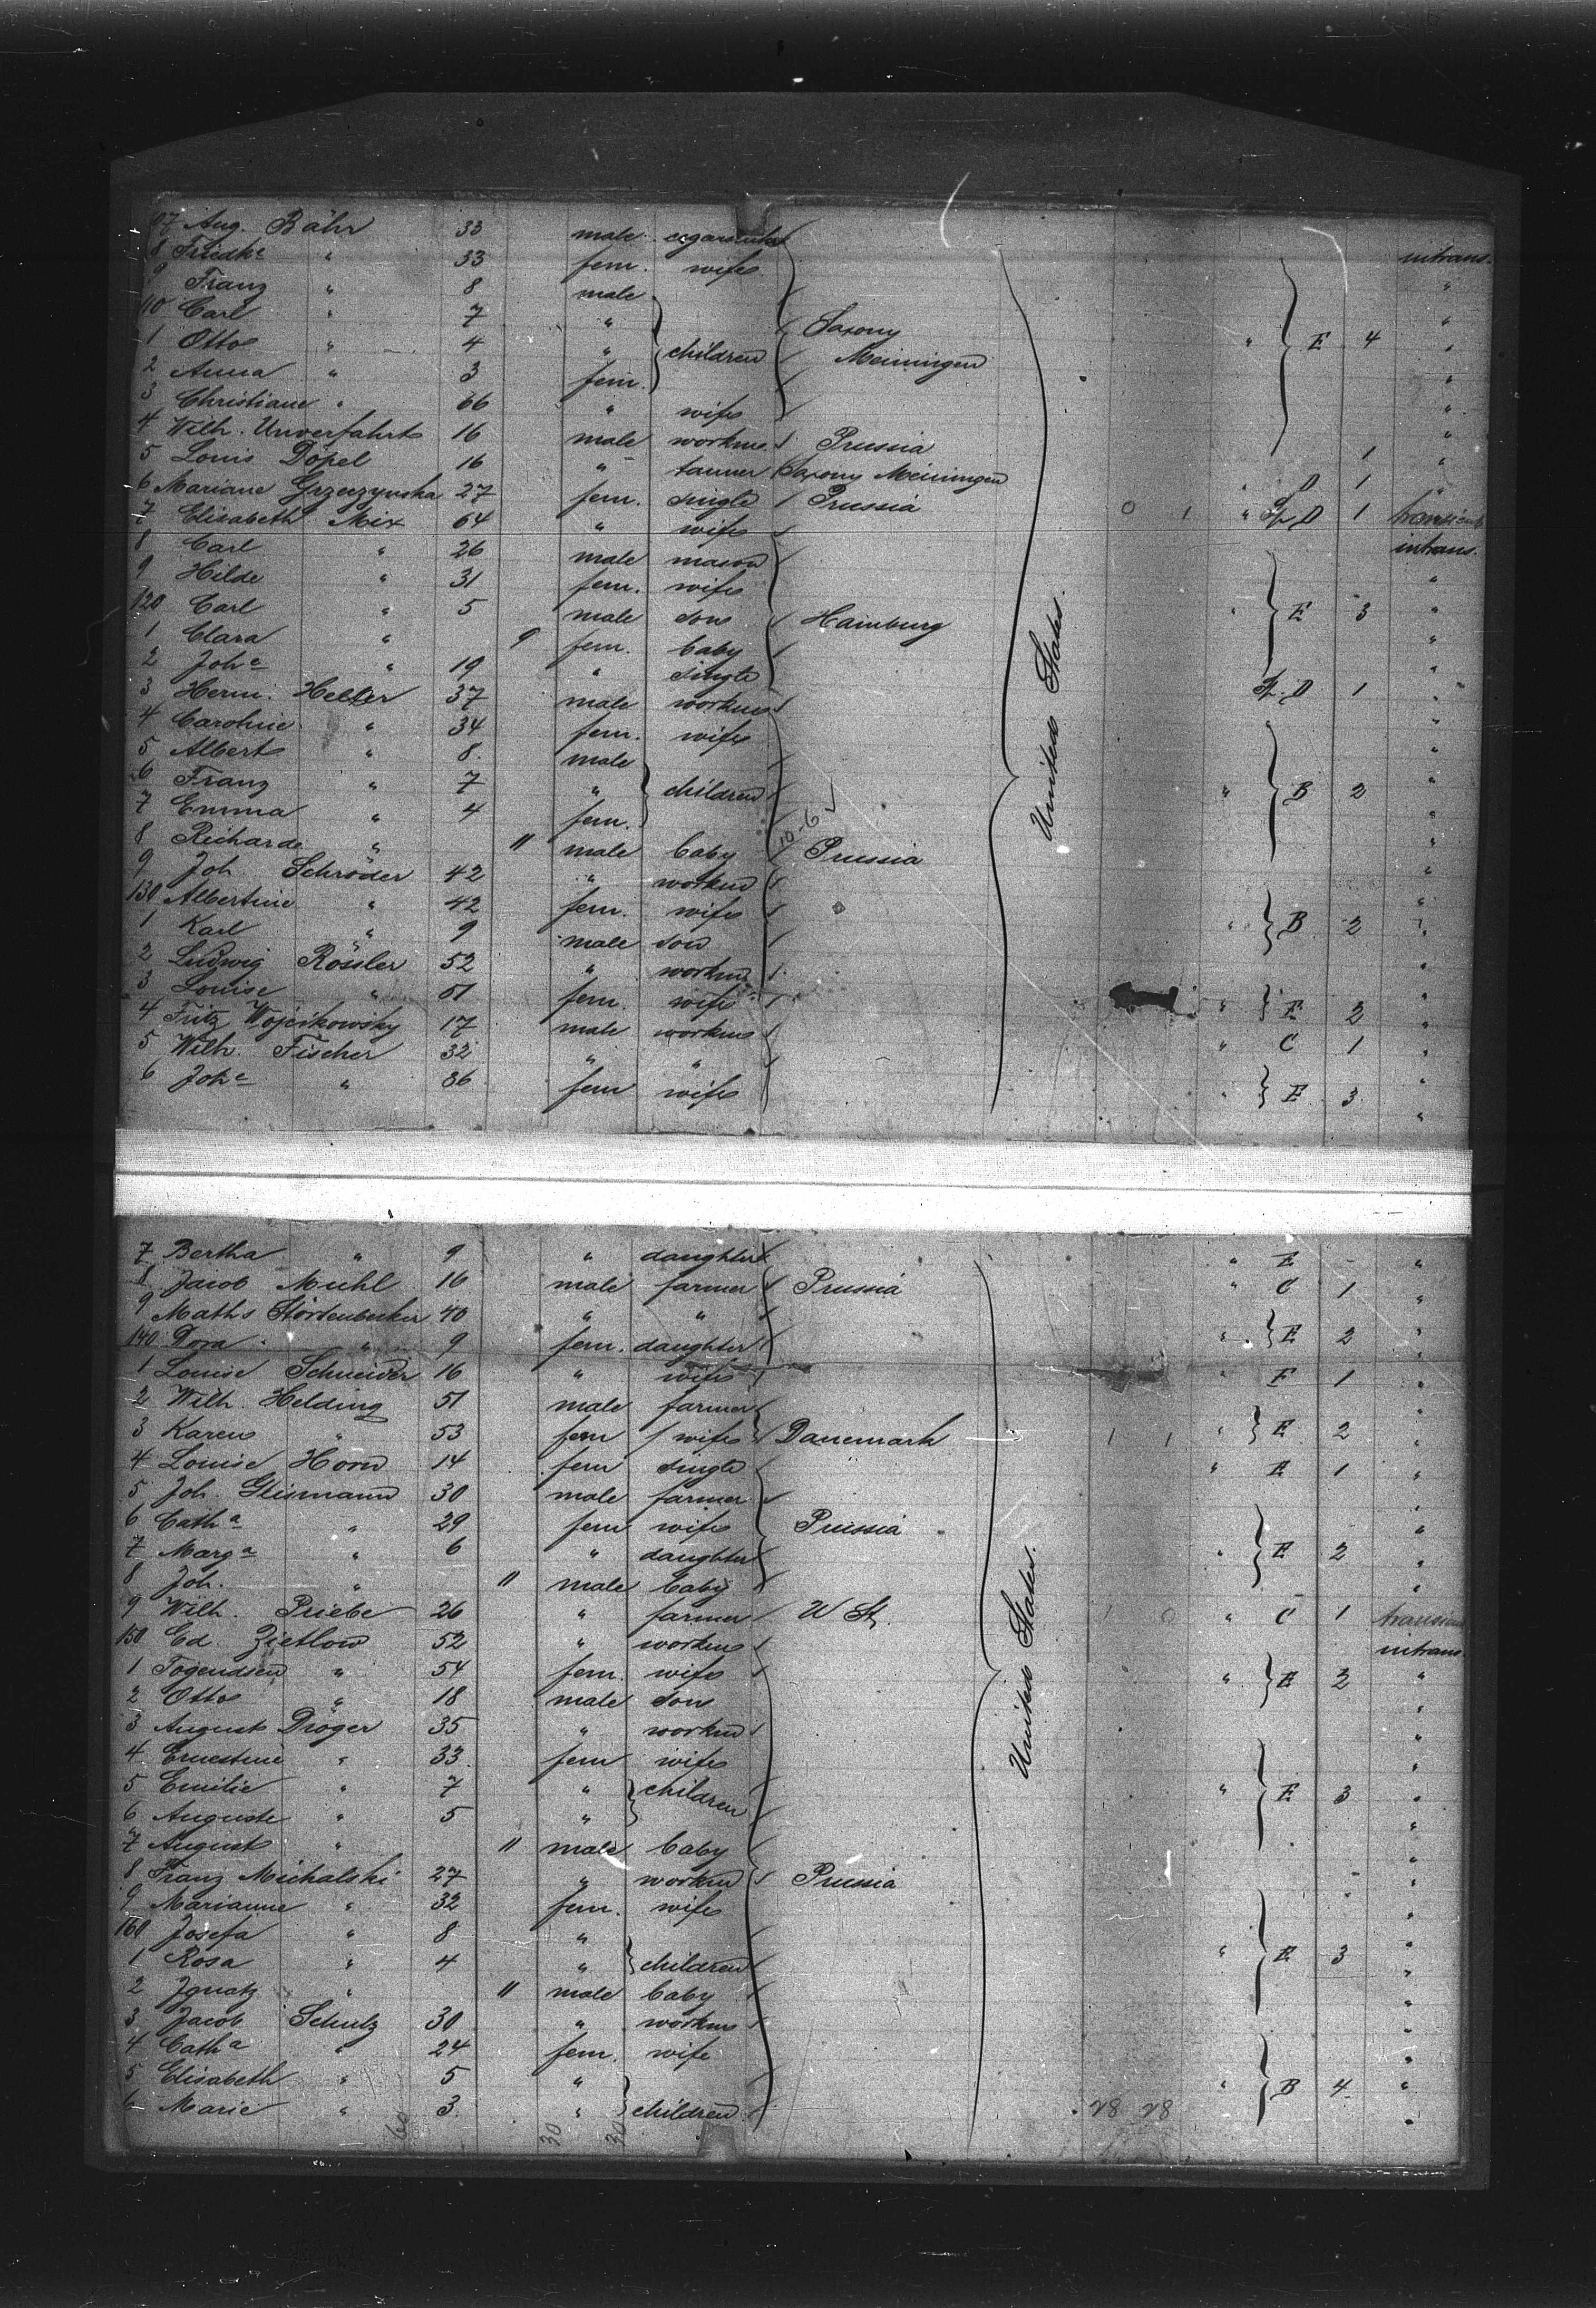 107 Aug. Bähr 33 male
8 Friedke " 33 fem. wife intrans.
9 Franz " 8 male "
10 Carl " 7 " Saxony "
1 Otto " 4 " children Meiningen " E 4 "
2 Anna " 3 fem. "
3 Christiane " 66 " wife "
4 Wilh. Unverfahrt 16 male workm. Prussia 1 "
5 Louis Döpel 16 " tanner Saxony Meiningen " D 1 "
6 Mariane 27 fem. single Prussia 0 1 " Sp. D 1 transient
7 Elisabeth Mix 64 " wife intrans.
8 Carl " 26 male mason "
9 Hilde " 31 fem. wife "
120 Carl " 5 male son Hamburg " E 3 "
1 Clara " 9 fem. baby "
2 Joha " 19 " single Sp. D 1 "
3 Herm. Heller 37 male workm "
4 Caroline " 34 fem. wife "
5 Albert " 8 male "
6 Franz " 7 " children " B 2 "
7 Emma " 4 fem. "
8 Richard " 11 male baby Prussia "
9 Joh. Schröder 42 " workm "
130 Albertine " 42 fem. wife " B 2 "
1 Karl " 9 male son "
2 Ludwig Rössler 52 " workm "
3 Louise " 51 fem. wife " E 2 "
4 Fritz Wojcikowsky 17 male workm " C 1 "
5 Wilh. Fischer 32 " " "
6 Joha " 36 fem wife " E 3 "
United States.
7 Bertha " 9 " daughter " E - "
8 Jacob Muhl 16 male farmer Prussia " C 1 "
9 Maths Störtenbecker 40 " " "
140 Dora " 9 fem. daughter " E 2 "
1 Louise Schneider 16 " wife " E 1 "
2 Wilh. Helding 51 male farmer "
3 Karen " 53 fem wife Danemark 1 1 " E 2 "
4 Louise Horn 14 fem single " E 1 "
5 Joh. Gleismann 30 male farmer "
6 Catha " 29 fem wife Prussia "
7 Marga " 6 " daughter " E 2 "
8 Joh. " 11 male baby "
9 Wilh. Priebe 26 " farmer U St. 1 0 " C 1 transient
150 Ed. Zietlow 52 " workm intrans.
1 " 54 fem. wife " E 2 "
2 Otto " 18 male son "
3 August Dröger 35 " workm "
4 Ernestine " 33 fem wife "
5 Emilie " 7 " children " E 3 "
6 Auguste " 5 " "
7 August " 11 male baby "
8 Franz Michalski 27 " workm Prussia "
9 Marianne " 32 fem. wife "
160 Josefa " 8 " "
1 Rosa " 4 " children " E 3 "
2 Ignatz " 11 male baby "
3 Jacob Schulz 30 " workm "
4 Catha " 24 fem. wife "
5 Elisabeth " 5 " " B 4 "
6 Marie " 3 " children 28 28 "
United States.
60 30 30